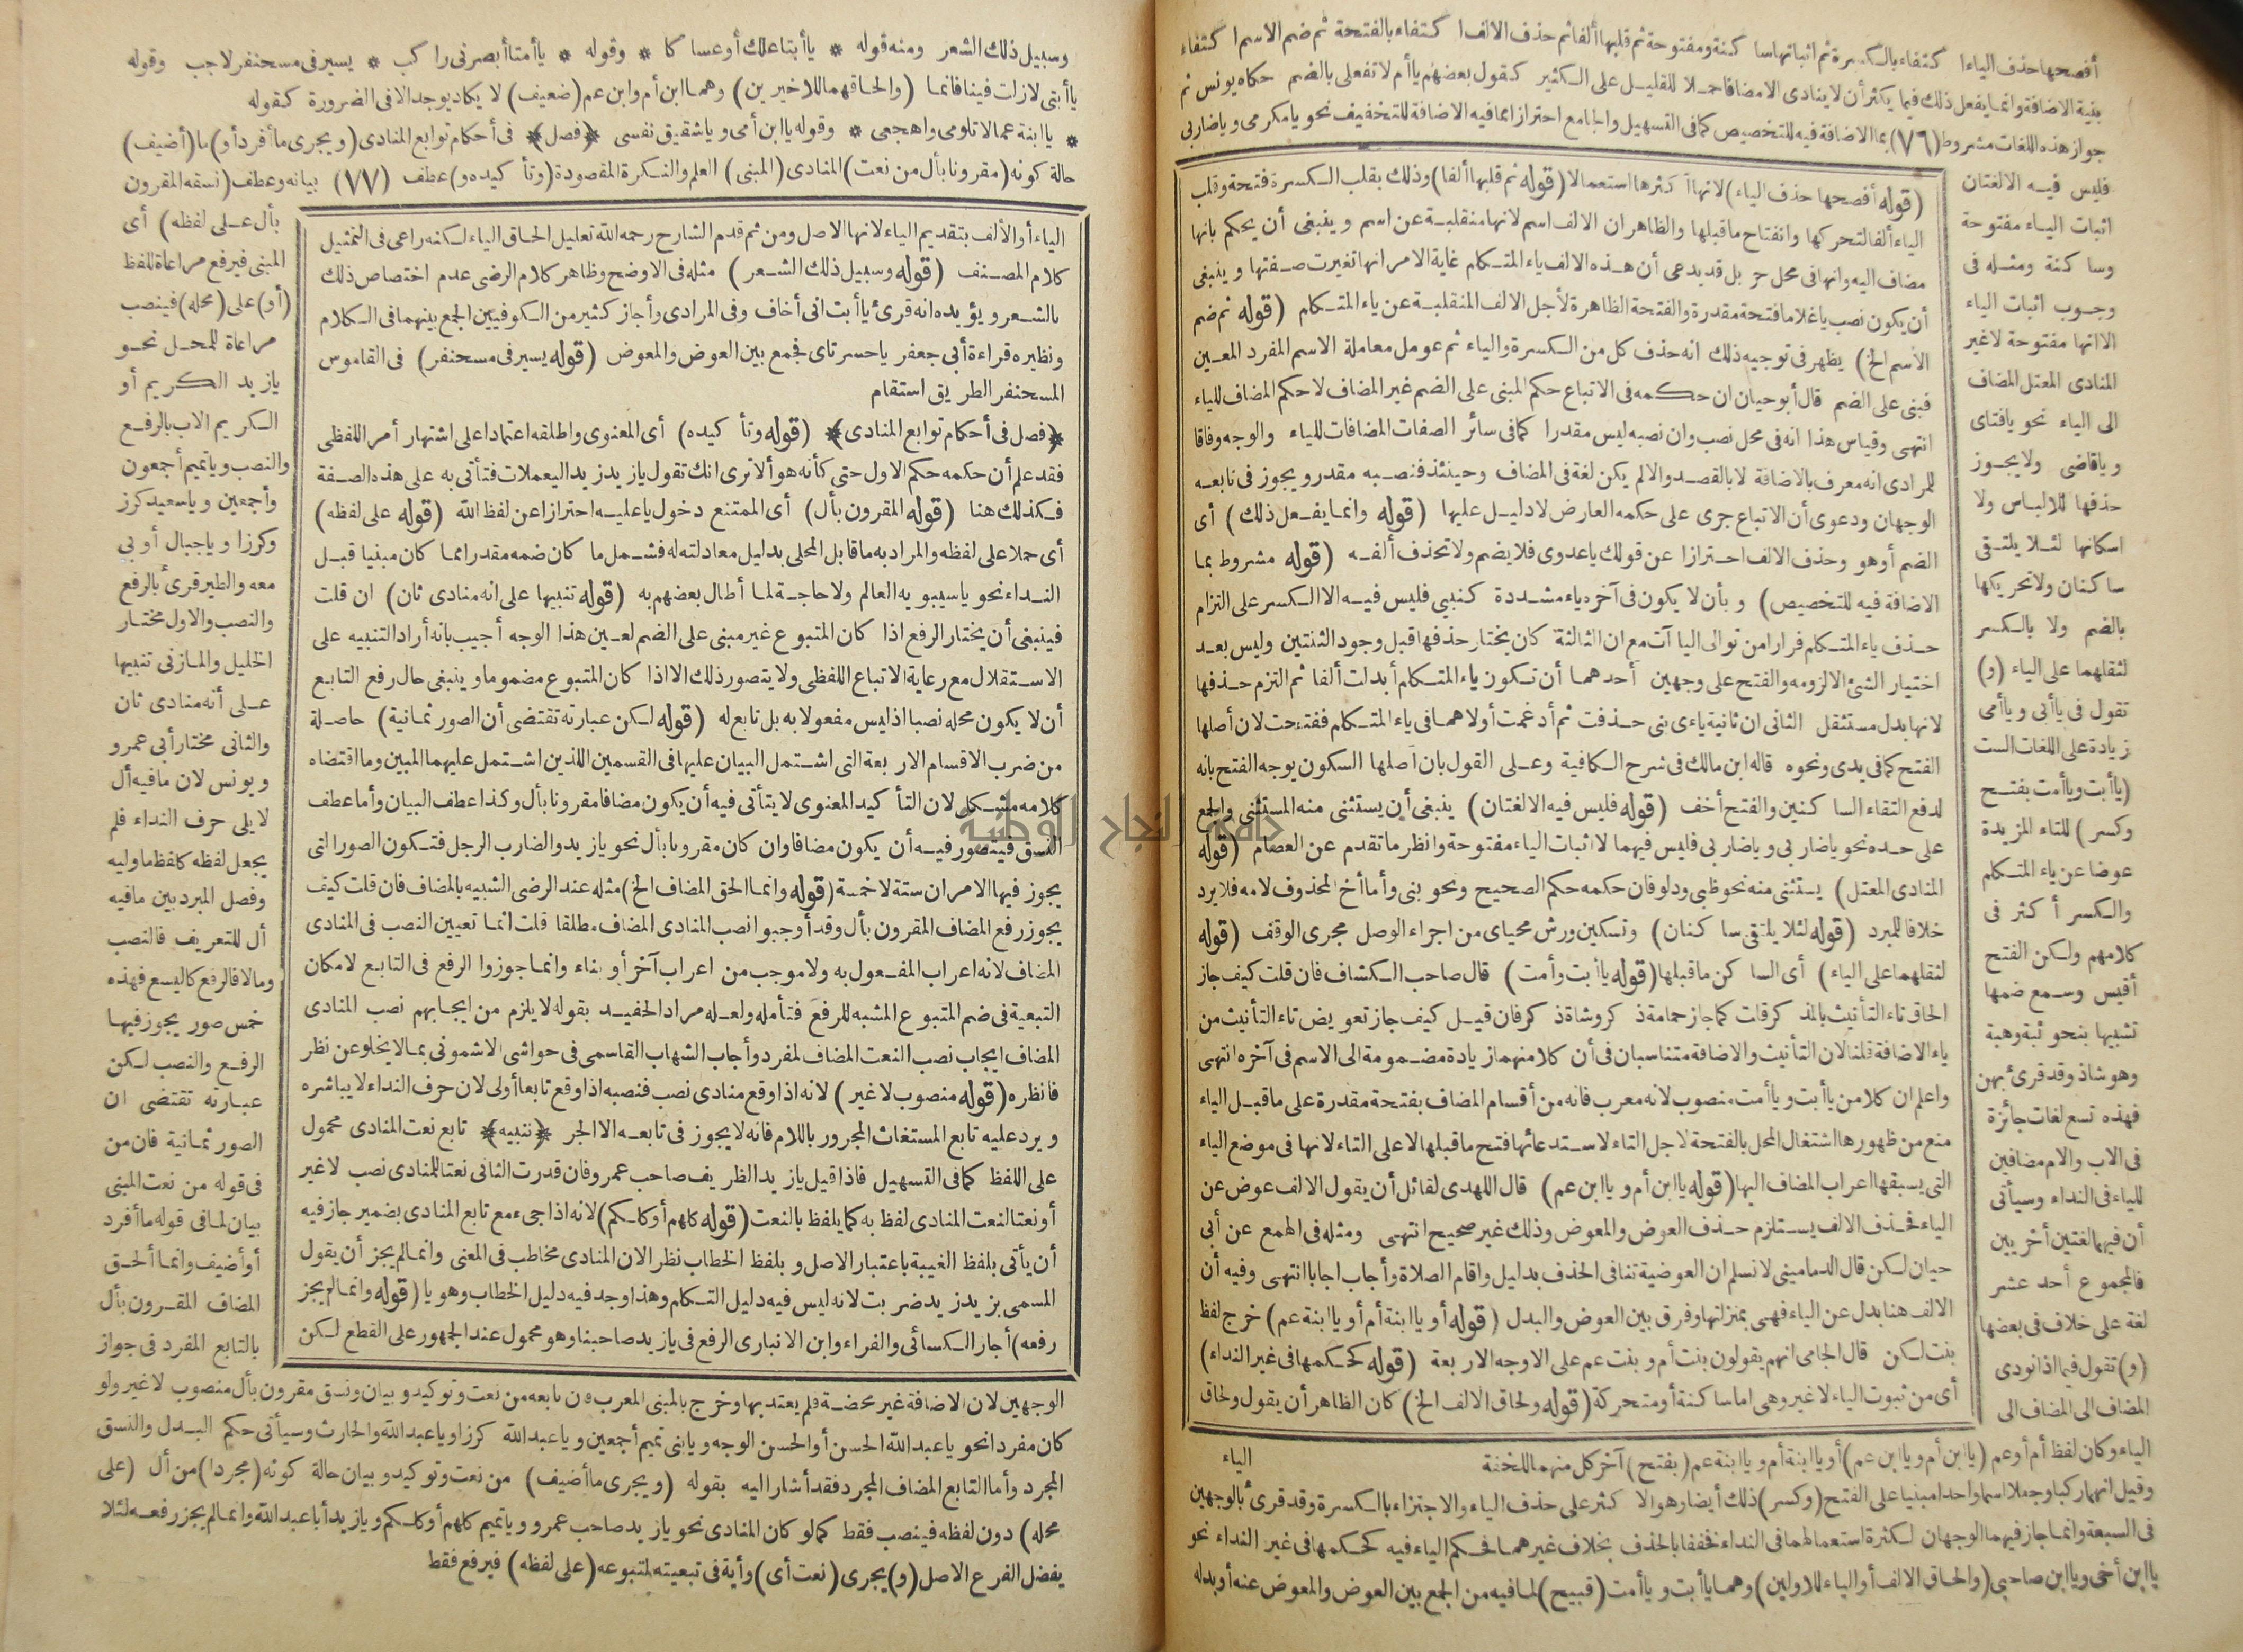 أفصحها حذف الياءا كتفاء بالكسرة ثم اثباتها سا كنة ومفتوحة ثم قلبها ألفا ثم حذف الالف ا كتفاء بالفتحة ثم ضم الاسم ا كتفاء
بنية الاضافة وانما يفعل ذلك فيما يكثر أن لا ينادى الا مضافا حملا للقليل على الكثير كقول بعضهم ياأم لا تفعلى بالضم حكاه يونس ثم
جواز هذه اللغات مشروط (٧٦) بما الاضافة فيه للتخصيص كما فى التسهيل والجامع احترازا مما فيه الاضافة للتخفيف نحو يا مكرمى وياضاربى
فليس فيه الالغتان
اثبات الياء مفتوحة
وسا كنة ومثله فى
وجوب اثبات الياء
الا انها مفتوحة لا غير
المنادى المعتل المضاف
الى الياء نحو يافتاى
وياقاضى ولا يجوز
حذفها للالباس ولا
اسكانها لئلا يلتقى
ساكنان ولا تحريكها
بالضم ولا بالكسر
لثقلهما على الياء (و)
تقول فى ياأبى وياأمى
زيادة على اللغات الست
(ياأبت وياأمت بفتح
وكسر) للتاء المزيدة
عوضا عن ياء المتكلم
والكسر أكثر فى
كلامهم ولكن الفتح
أقيس وسمع ضمها
تشبيها بنحو ثبة وهبة
وهو شاذ وقد قرئ بهن
فهذه تسع لغات جائزة
فى الاب والام مضافين
للياء فى النداء وسيأتى
أن فيهما لغتين أخريين
فالمجموع أحد عشر
لغة على خلاف فى بعضها
(و) تقول فيما اذا نودى
المضاف الى المضاف الى
(قوله أفصحها حذف الياء) لانها أكثرها استعمالا (قوله ثم قلبها ألفا) وذلك بقلب الكسرة فتحة وقلب
الياء ألفا لتحركها وانفتاح ما قبلها والظاهر ان الالف اسم لانها منقلبة عن اسم وينبغى أن يحكم بانها
مضاف اليه وانها فى محل جر بل قد يدعى أن هذه الالف ياء المتكلم غاية الامر انها تغيرت صفتها وينبغى
أن يكون نصب ياغلاما فتحة مقدرة والفتحة الظاهرة لأجل الالف المنقلبة عن ياء المتكلم (قوله ثم ضم
الاسم الخ) يظهر فى توجيه ذلك انه حذف كل من الكسرة والياء ثم عومل معاملة الاسم المفرد المعين
فبنى على الضم قال أبو حيان ان حكمه فى الاتباع حكم المبنى على الضم غير المضاف لا حكم المضاف للياء
انتهى وقياس هذا انه فى محل نصب وان نصبه ليس مقدرا كما فى سائر الصفات المضافات للياء والوجه وفاقا
للمرادى انه معرف بالاضافة لا بالقصد والا لم يكن لغة فى المضاف وحينئذ فنصبه مقدر ويجوز فى تابعه
الوجهان ودعوى أن الاتباع جرى على حكمه العارض لا دليل عليها (قوله وانما يفعل ذلك) أى
الضم أو هو وحذف الالف احترازا عن قولك ياعدوى فلا يضم ولا تحذف ألفه (قوله مشروط بما
الاضافة فيه للتخصيص) وبأن لا يكون فى آخره ياء مشددة كنبى فليس فيه الا الكسر على التزام
حذف ياء المتكلم فرارا من توالى الياآت مع ان الثالثة كان يختار حذفها قبل وجود الثنتين وليس بعد
اختيار الشئ الا لزومه والفتح على وجهين أحدهما أن تكون ياء المتكلم أبدلت ألفا ثم التزم حذفها
لانها بدل مستثقل الثانى ان ثانية ياءى بنى حذفت ثم أدغمت أولاهما فى ياء المتكلم ففتحت لان أصلها
الفتح كما فى يدى ونحوه قاله ابن مالك فى شرح الكافية وعلى القول بان أصلها السكون يوجه الفتح بانه
لدفع التقاء السا كنين والفتح أخف (قوله فليس فيه الالغتان) ينبغى أن يستثنى منه المستثنى والجمع
على حده نحو ياضاربى وياضاربى فليس فيهما لا اثبات الياء مفتوحة وانظر ما تقدم عن العصام (قوله
المنادى المعتل) يستثنى منه نحو ظبى ودلو فان حكمه حكم الصحيح ونحو بنى وأما أخ المحذوف لامه فلا يرد
خلافا للمبرد (قوله لئلا يلتقى سا كنان) وتسكين ورش محياى من اجراء الوصل مجرى الوقف (قوله
لثقلهما على الياء) أى السا كن ما قبلها (قوله ياأبت وأمت) قال صاحب الكشاف فان قلت كيف جاز
الحاق تاء التأنيث بالمذكر قلت كما جاز حمامة ذكر وشاة ذكر فان قيل كيف جاز تعويض تاء التأنيث من
ياء الاضافة قلنا لان التأنيث والاضافة متناسبان فى أن كلا منهما زيادة مضمومة الى الاسم فى آخره انتهى
واعلم ان كلا من ياأبت وياأمت منصوب لانه معرب فانه من أقسام المضاف بفتحة مقدرة على ما قبل الياء
منع من ظهورها اشتغال المحل بالفتحة لاجل التاء لاستدعائها فتح ما قبلها لا على التاء لانها فى موضع الياء
التى يسبقها اعراب المضاف اليها (قوله ياابن أم وياابن عم) قال اللهدى لقائل أن يقول الالف عوض عن
الياء فحذف الالف يستلزم حذف العوض والمعوض وذلك غير صحيح انتهى ومثله فى الهمع عن أبى
حيان لكن قال الدمامينى لا نسلم ان العوضية تنافى الحذف بدليل واقام الصلاة وأجاب اجابا انتهى وفيه أن
الالف هنا بدل عن الياء فهى بمنزلتها وفرق بين العوض والبدل (قوله أو ياابنة أم أو ياابنة عم) خرج لفظ
بنت لكن قال الجامى انهم يقولون بنت أم وبنت عم على الاوجه الاربعة (قوله كحكمها فى غير النداء)
أى من ثبوت الياء لا غير وهى اما ساكنة أو متحركة (قوله ولحاق الالف الخ) كان الظاهر أن يقول ولحاق
الياء وكان لفظ أم أو عم (ياابن أم وياابن عم) أو ياابنة أم وياابنة عم (بفتح) آخر كل منهما للخفة الياء
وقيل انهما ركبا وجعلا اسما واحدا مبنيا على الفتح (وكسر) ذلك أيضا وهو الا كثر على حذف الياء والاجتزاء بالكسرة وقد قرئ بالوجهين
فى السبعة وانما جاز فيهما الوجهان لكثرة استعمالهما فى النداء فخففا بالحذف بخلاف غيرهما فحكم الياء فيه كحكمها فى غير النداء نحو
ياابن أخى وياابن صاحبى (والحاق الالف أو الياء للاولين) وهما ياأبت وياأمت (قبيح) لما فيه من الجمع بين العوض والمعوض عنه أو بدله
وسبيل ذلك الشعر ومنه قوله * ياأبتا علك أو عسا كا * وقوله * ياأمتا أبصرنى را كب * يسير فى مسحنفر لاحب وقوله
ياأبتى لازات فينا فانما (والحاقهما للاخيرين) وهما ابن أم وابن عم (ضعيف) لا يكاد يوجد الا فى الضرورة كقوله
* ياابنة عما لا تلومى واهجعى * وقوله ياابن أمى وياشقيق نفسى ﴿فصل﴾ فى أحكام توابع المنادى (ويجرى ما أفرد أو) ما (أضيف)
حالة كونه (مقرونا بأل من نعت) المنادى (المبنى) العلم والنكرة المقصودة (وتأ كيده و) عطف (٧٧) بيانه وعطف (نسقه المقرون
بأل على لفظه) أى
المبنى فيرفع مراعاة للفظ
(أو) على (محله) فينصب
مراعاة للمحل نحو
يازيد الكريم أو
الكريم الاب بالرفع
والنصب وياتميم أجمعون
وأجمعين وياسعيد كرز
وكرزا وياجبال أوبى
معه والطير قرئ بالرفع
والنصب والاول مختار
الخليل والمازنى تنبيها
على أنه منادى ثان
والثانى مختار أبى عمرو
ويونس لان ما فيه أل
لا يلى حرف النداء فلم
يجعل لفظه كلفظ ما وليه
وفصل المبرد بين ما فيه
أل للتعريف فالنصب
ومالا فالرفع كاليسع فهذه
خمس صور يجوز فيها
الرفع والنصب لكن
عبارته تقتضى ان
الصور ثمانية فان من
فى قوله من نعت المبنى
بيان لما فى قوله ما أفرد
أو أضيف وانما ألحق
المضاف المقرون بأل
بالتابع المفرد فى جواز
الياء أو الألف بتقديم الياء لانها الاصل ومن ثم قدم الشارح رحمه الله تعليل الحاق الياء لكنه راعى فى التمثيل
كلام المصنف (قوله وسبيل ذلك الشعر) مثله فى الاوضح وظاهر كلام الرضى عدم اختصاص ذلك
بالشعر ويؤيده انه قرئ ياأبت انى أخاف وفى المرادى وأجاز كثير من الكوفيين الجمع بينهما فى الكلام
ونظيره قراءة أبى جعفر ياحسرتاى فجمع بين العوض والمعوض (قوله يسير فى مسحنفر) فى القاموس
المسحنفر الطريق استقام
﴿فصل فى أحكام توابع المنادى﴾ (قوله وتأ كيده) أى المعنوى واطلقه اعتمادا على اشتهار أمر اللفظى
فقد علم أن حكمه حكم الاول حتى كأنه هو ألا ترى انك تقول يازيد زيد اليعملات فتأتى به على هذه الصفة
فكذلك هنا (قوله المقرون بأل) أى الممتنع دخول يا عليه احترازا عن لفظ الله (قوله على لفظه)
أى حملا على لفظه والمراد به ما قابل المحلى بدليل معادلته له فشمل ما كان ضمه مقدرا مما كان مبنيا قبل
النداء نحو ياسيبويه العالم ولا حاجة لما أطال بعضهم به (قوله تنبيها على انه منادى ثان) ان قلت
فينبغى أن يختار الرفع اذا كان المتبوع غير مبنى على الضم لعين هذا الوجه أجيب بانه أراد التنبيه على
الاستقلال مع رعاية الاتباع اللفظى ولا يتصور ذلك الا اذا كان المتبوع مضموما وينبغى حال رفع التابع
أن لا يكون محله نصبا اذ ليس مفعولا به بل تابع له (قوله لكن عبارته تقتضى أن الصور ثمانية) حاصلة
من ضرب الاقسام الاربعة التى اشتمل البيان عليها فى القسمين اللذين اشتمل عليهما المبين وما اقتضاه
كلامه مشكل لان التأ كيد المعنوى لا يتأتى فيه أن يكون مضافا مقرونا بأل وكذا عطف البيان وأما عطف
النسق فيتصور فيه أن يكون مضافا وان كان مقرونا بأل نحو يازيد والضارب الرجل فتكون الصور التى
يجوز فيها الامران ستة لا خمسة (قوله وانما الحق المضاف الخ) مثله عند الرضى الشبيه بالمضاف فان قلت كيف
يجوز رفع المضاف المقرون بأل وقد أوجبوا نصب المنادى المضاف مطلقا قلت انما تعيين النصب فى المنادى
المضاف لانه اعراب المفعول به ولا موجب من اعراب آخر أو بناء وانما جوزوا الرفع فى التابع لامكان
التبعية فى ضم المتبوع المشبه للرفع فتأمله ولعله مراد الحفيد بقوله لا يلزم من ايجابهم نصب المنادى
المضاف ايجاب نصب النعت المضاف لمفرد وأجاب الشهاب القاسمى فى حواشى الاشمونى بما لا يخلو عن نظر
فانظره (قوله منصوب لا غير) لانه اذا وقع منادى نصب فنصبه اذا وقع تابعا أولى لان حرف النداء لا يباشره
ويرد عليه تابع المستغاث المجرور باللام فانه لا يجوز فى تابعه الا الجر ﴿تنبيه﴾ تابع نعت المنادى محمول
على اللفظ كما فى التسهيل فاذا قيل يازيد الظريف صاحب عمرو فان قدرت الثانى نعتا للمنادى نصب لا غير
أو نعتا لنعت المنادى لفظ به كما يلفظ بالنعت (قوله كلهم أو كلكم) لانه اذا جىء مع تابع المنادى بضمير جاز فيه
أن يأتى بلفظ الغيبة باعتبار الاصل وبلفظ الخطاب نظرا لان المنادى مخاطب فى المعنى وانما لم يجز أن يقول
المسمى بزيد زيد ضربت لانه ليس فيه دليل التكلم وهذا وجد فيه دليل الخطاب وهو يا (قوله وانما لم يجز
رفعه) أجاز الكسائى والفراء وابن الانبارى الرفع فى يازيد صاحبنا وهو محمول عند الجمهور على القطع لكن
الوجهين لان الاضافة غير محضة فلم يعتد بها وخرج بالمبنى المعرب فان تابعه من نعت وتوكيد وبيان ونسق مقرون بأل منصوب لا غير ولو
كان مفردا نحو ياعبد الله الحسن أو الحسن الوجه ويابنى تميم أجمعين وياعبد الله كرزا وياعبد الله والحارث وسيأتى حكم البدل والنسق
المجرد وأما التابع المضاف المجرد فقد أشار اليه بقوله (ويجرى ما أضيف) من نعت وتوكيد وبيان حالة كونه (مجردا) من أل (على
محله) دون لفظه فينصب فقط كما لو كان المنادى نحو يازيد صاحب عمرو وياتميم كلهم أو كلكم ويازيد أبا عبد الله وانما لم يجز رفعه لئلا
يفضل الفرع الاصل (و) يجرى (نعت أى) وأية فى تبعيته لمتبوعه (على لفظه) فيرفع فقط
جامعة النجاح الوطنية